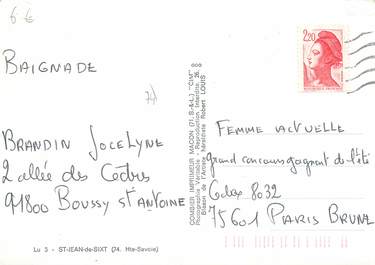 6 €
BAIGNADE
71)
BRANDIN JOCELYNE
2 allée des Cèdres
91800 BOUSSY St ANTOINE
Lu 3 - ST-JEAN-de-SIXT (74. Hte-Savoie)
COMBIER IMPRIMEUR MACON (71. S.-&-L.) "CIM"
Photographie Véritable - Reproduction Interdite
Blason de l'Artiste héraldiste Robert LOUIS
2,20
FEMME ACTUELLE
grand concours gagnant de l'été
Cedex 8032
75601 PARIS BRUNE